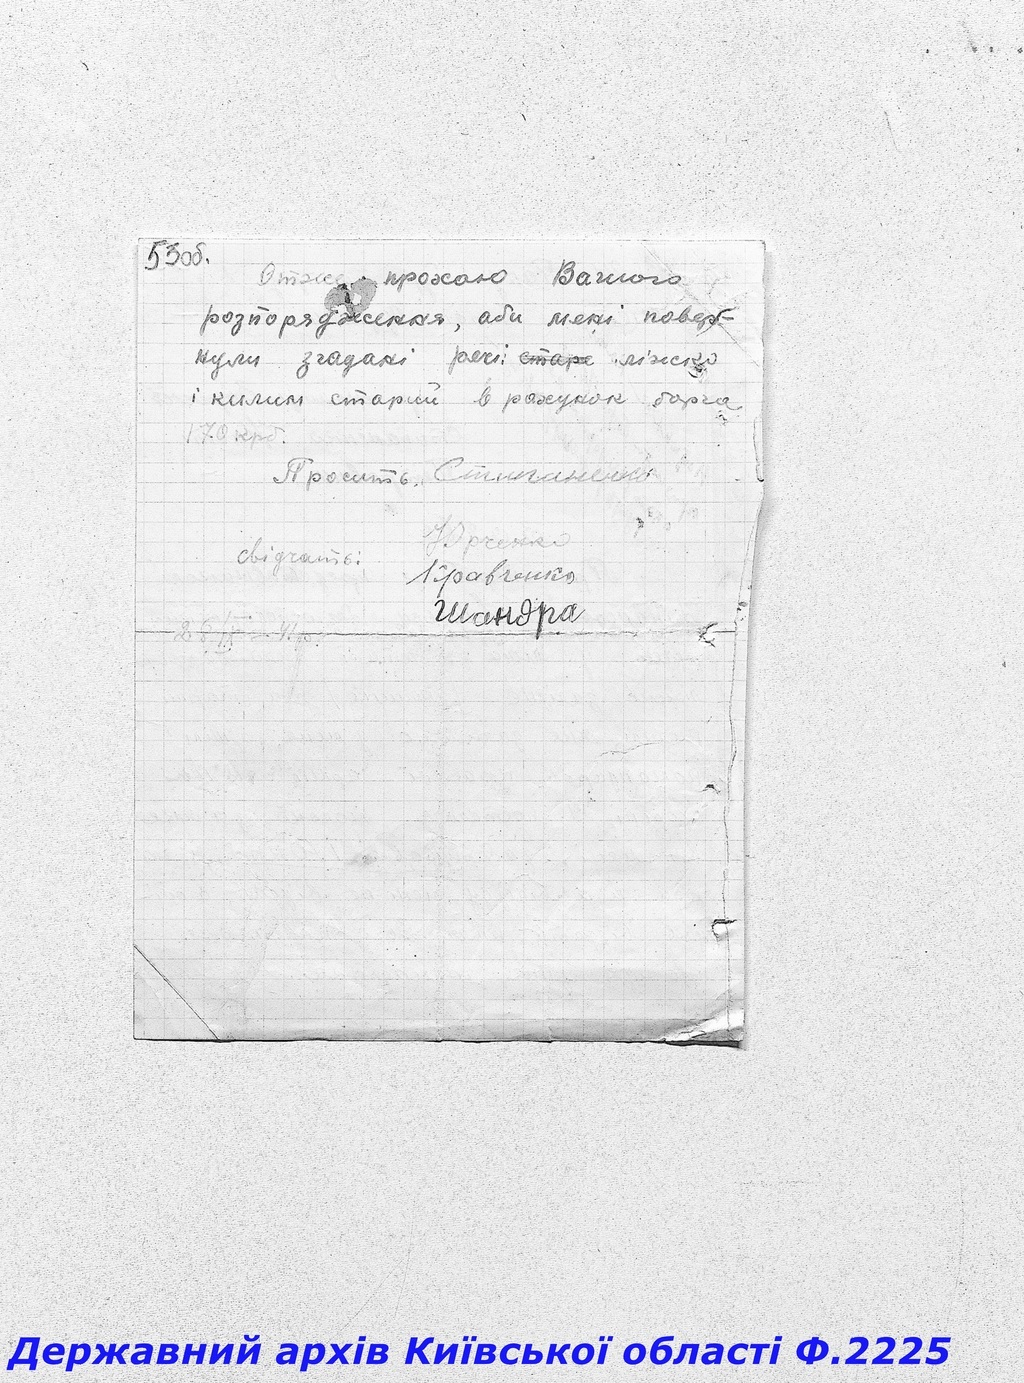 53об.
Отже прохаю Вашого
розпорядження, аби мені повер-
нули згадані речі: старе ліжко
і килим старий в рахунок борга
170 крб.
Просить,
свідчать: Юрченко
Кравченко
Шандра
Державний архів Київської області Ф.2225